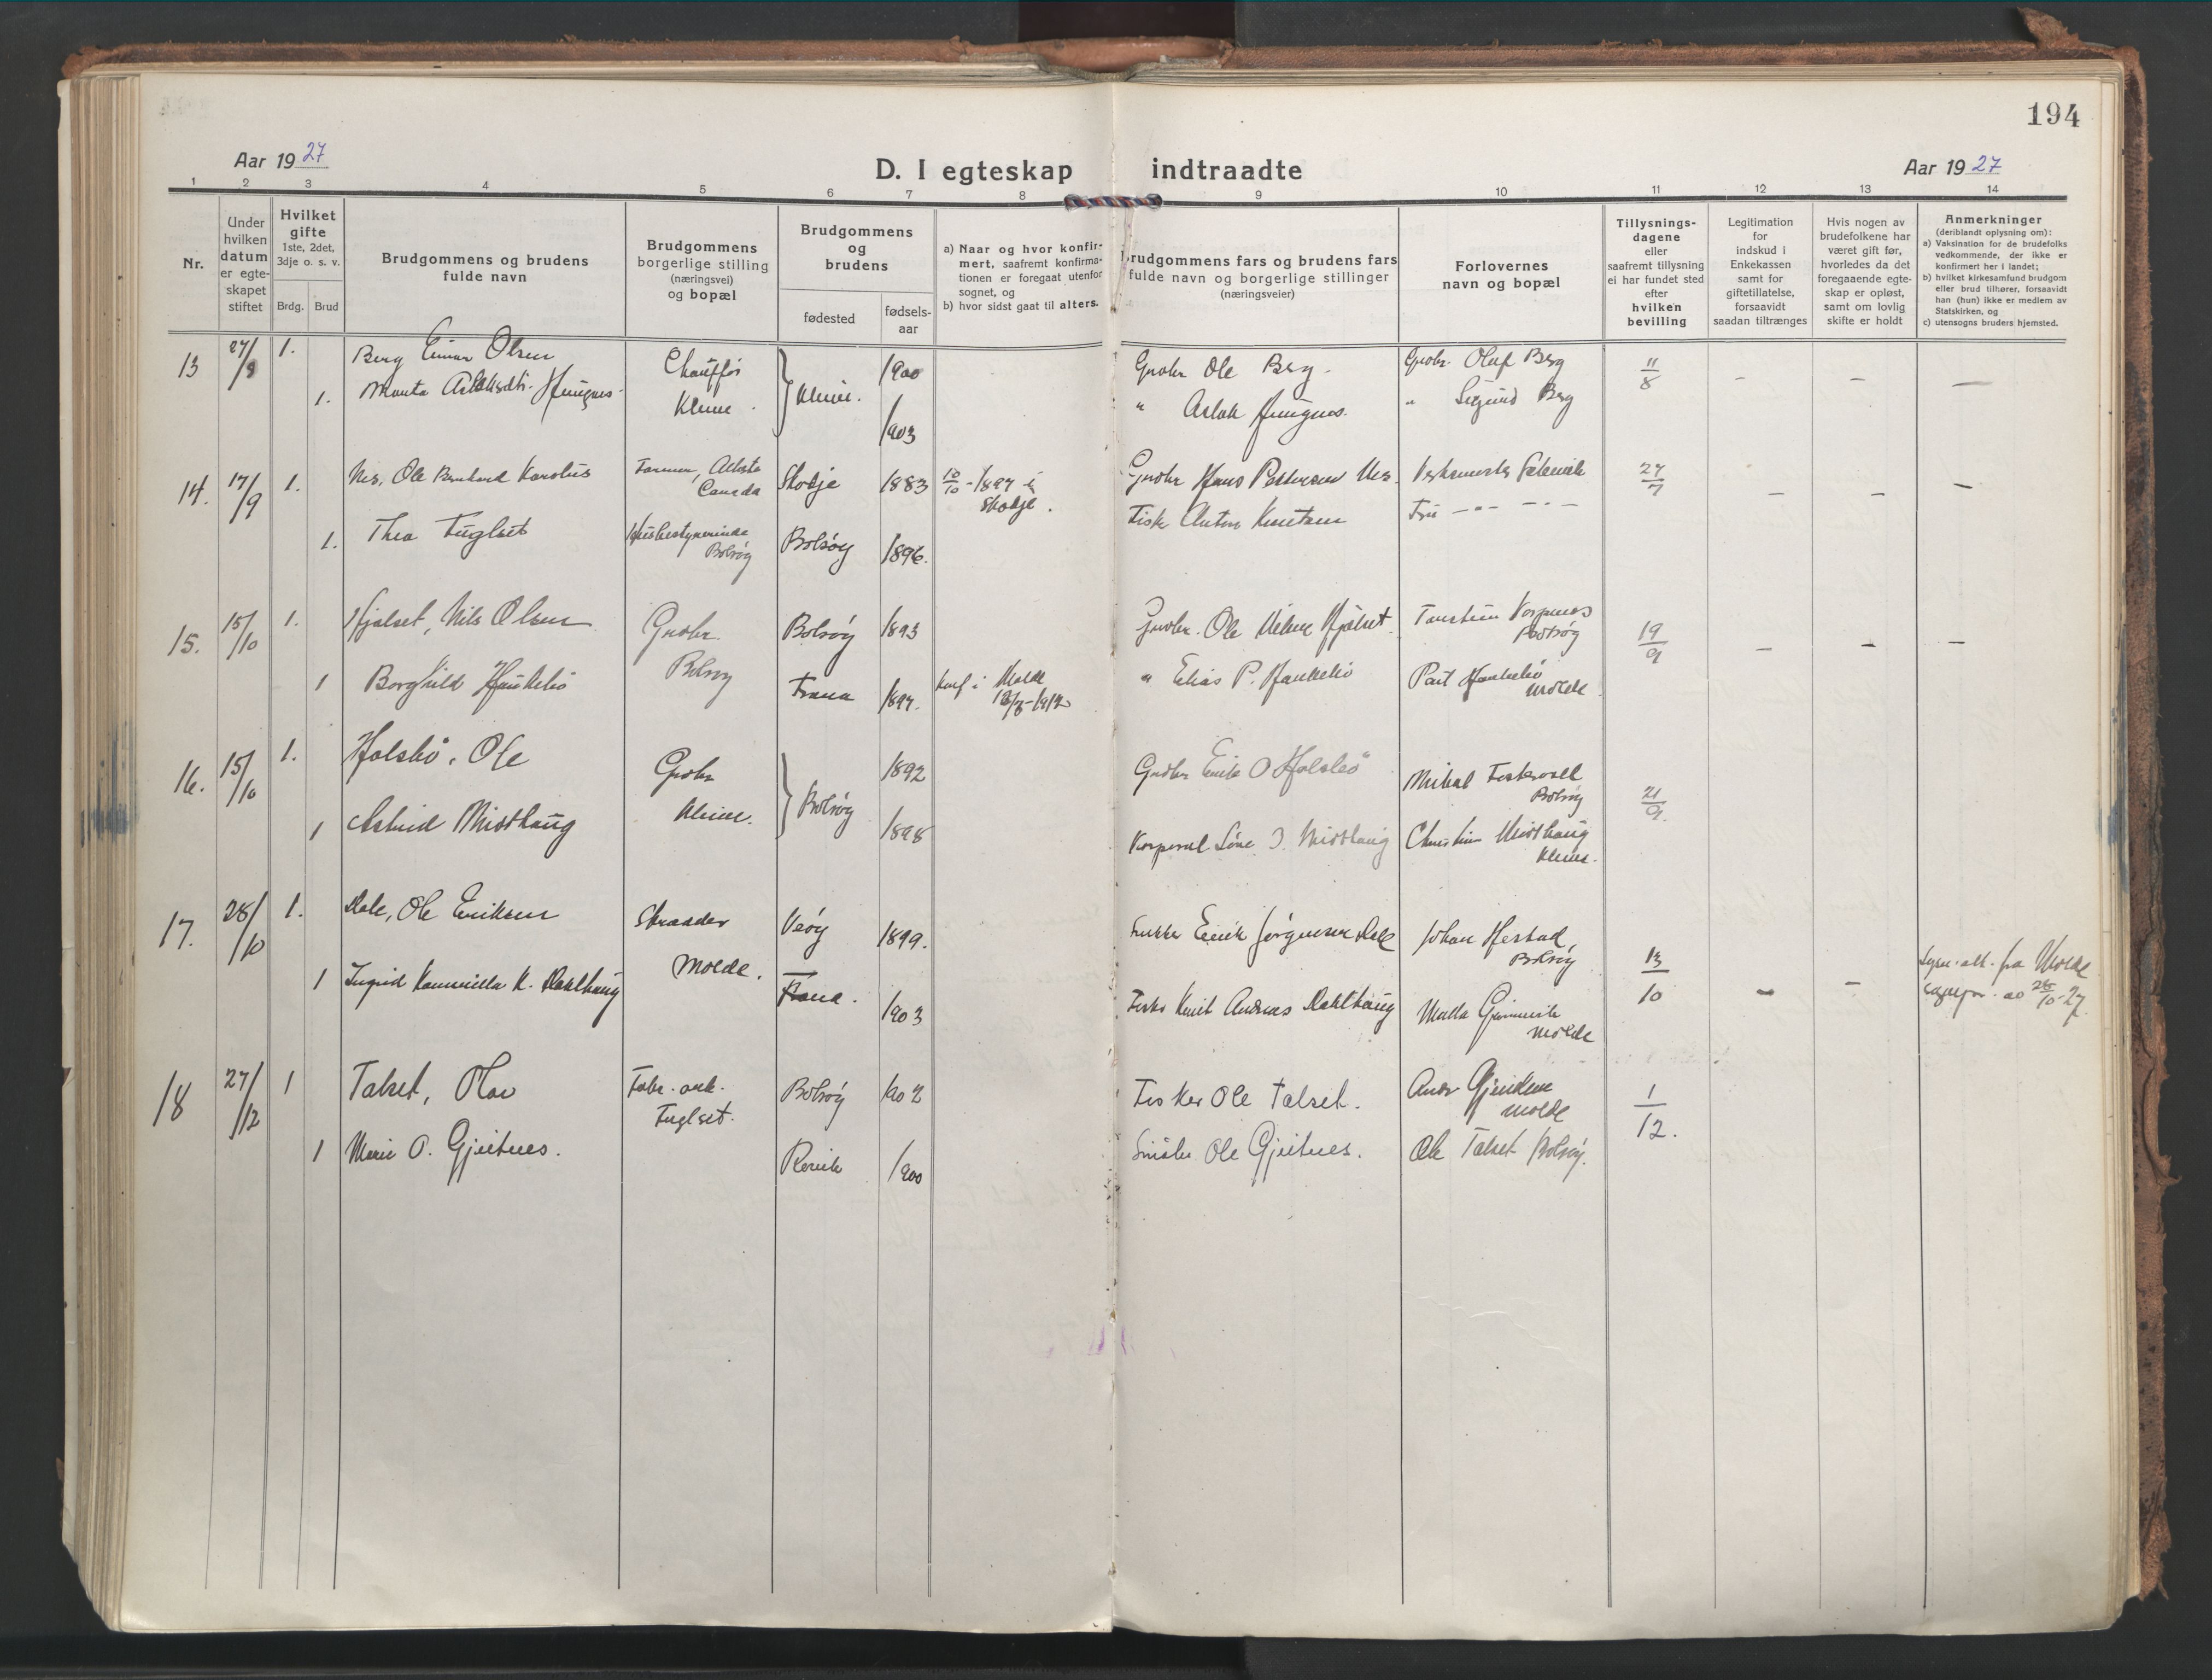 194
Aar 1927
D. I egteskap indtraadte
Aar 1927
1 2 3 4 5 6 7 8 9 10 11 12 13 14
Nr.
Under
hvilken
datum
er egte-
skapet
stiftet
Hvilket
gifte
1ste, 2det,
3dje o. s. v.
Brdg. Brud
Brudgommens og brudens
fulde navn
Brudgommens
borgerlige stilling
(næringsvei)
og bopæl
Brudgommens
og
brudens
fødested
fødsels-
aar
a) Naar og hvor konfir-
mert, saafremt konfirma-
tionen er foregaat utenfor
sognet, og
b) hvor sidst gaat til alters.
Brudgommens fars og brudens fars
fulde navn og borgerlige stillinger
(næringsveier)
Forlovernes
navn og bopæl
Tillysnings-
dagene
eller
saafremt tillysning
ei har fundet sted
efter
hvilken
bevilling
Legitimation
for
indskud i
Enkekassen
samt for
giftetillatelse,
forsaavidt
saadan tiltrænges
Hvis nogen av
brudefolkene har
været gift før,
hvorledes da det
foregaaende egte-
skap er opløst,
samt om lovlig
skifte er holdt
Anmerkninger
(deriblandt oplysning om):
a) Vaksination for de brudefolks
vedkommende, der ikke er
konfirmert her i landet;
b) hvilket kirkesamfund brudgom
eller brud tilhører, forsaavidt
han (hun) ikke er medlem av
Statskirken, og
c) utensogns bruders hjemsted.
13 1. Berg Einar Olsen Chauffør 1900 Gaardbr. Ole Berg. Gaardbr. Oluf Berg 11/8 - - -
1. Kleive. Kleive. 1903 " Aslak " Sigurd Berg
14. 17/9 1. Ole Bernhard Karolus Farmer, Alberta Skodje 1883 10/10-1897 i Hans Pettersen 24/7 - - -
Canada Skodje.
1. Thea Fuglset Husbestyrerinde Bolsøy 1896. Fisk. Anton Knutsen Fru
Bolsøy
15. 15/10 1. Hjelset, Nils Olsen Gaardbr. Bolsøy 1893 Gaardbr. Ole Nilsen Hjelset 19/9 - - -
Bolsøy
1 Borghild Haukebø Bolsøy Fræna 1897. konf i Molde " Elias P. Haukebø Haukebø
1912 Molde.
16. 15/10 1. Ole 1892 Gaardbr. Erik O
Bolsøy 21/9.
1 Astrid Midthaug Kleive. Bolsøy 1898 Korporal J. Midthaug Midthaug
Kleive.
17. 28/10 1. Dale, Ole Eriksen Skrædder Veøy 1899. Erik Jørgensen Dale Johan Hestad, 13/10 - - fra Molde
Bolsøy 28/10-27.
1 Ingrid K. Dahlhaug Molde. Fræna. 1903 Knut Andreas Dahlhaug
Molde
18 27/12 1 Talset, Olav Fabr. arb. Bolsøy 1902 Fisker Ole Talset. Gjendem 1/12.
Fuglset. Molde
1 Marie O. Gjeitnes. Røvik 1900 Ole Gjeitnes. Ole Talset Bolsøy.